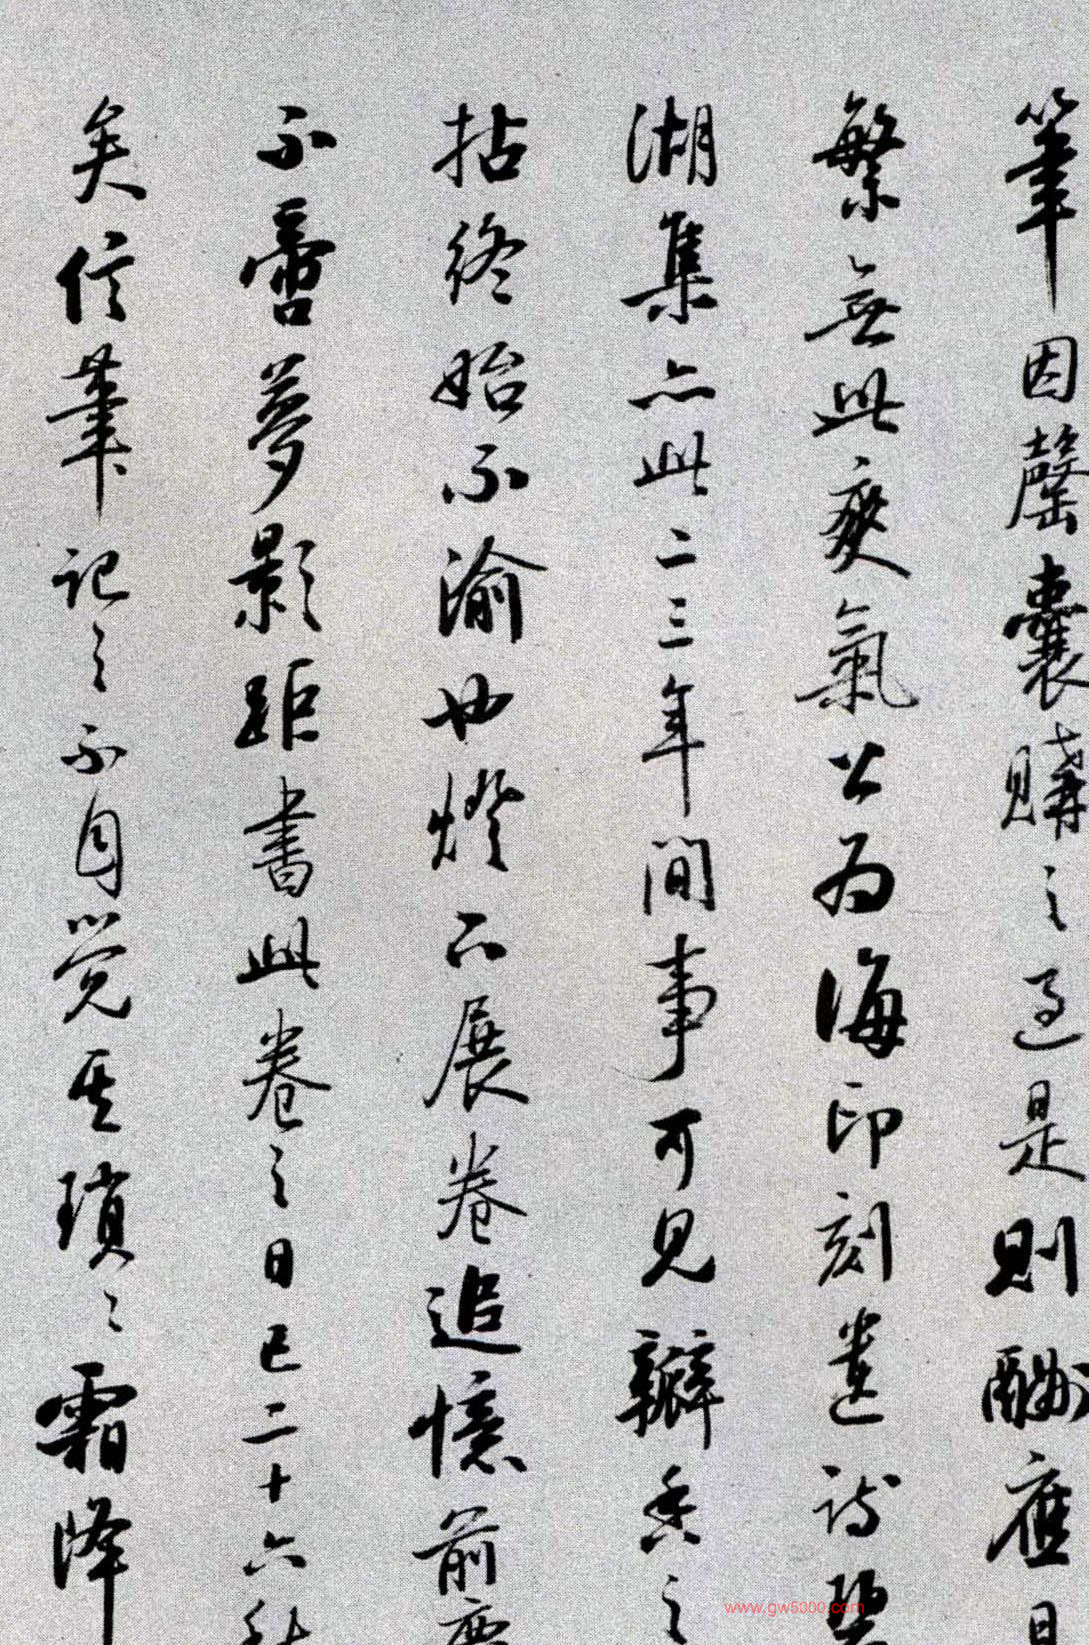 筆因罄囊購之過是則酬應日
繁無此爽氣公為海印刻遺詩望
湖集亦此二三年間事可見瓣香之
拈終始不渝也燈下展卷追憶前塵
不啻夢影距書此卷之日已二十六秋
矣信筆記之不自覺其瑣〻霜降
www.gw5000.com